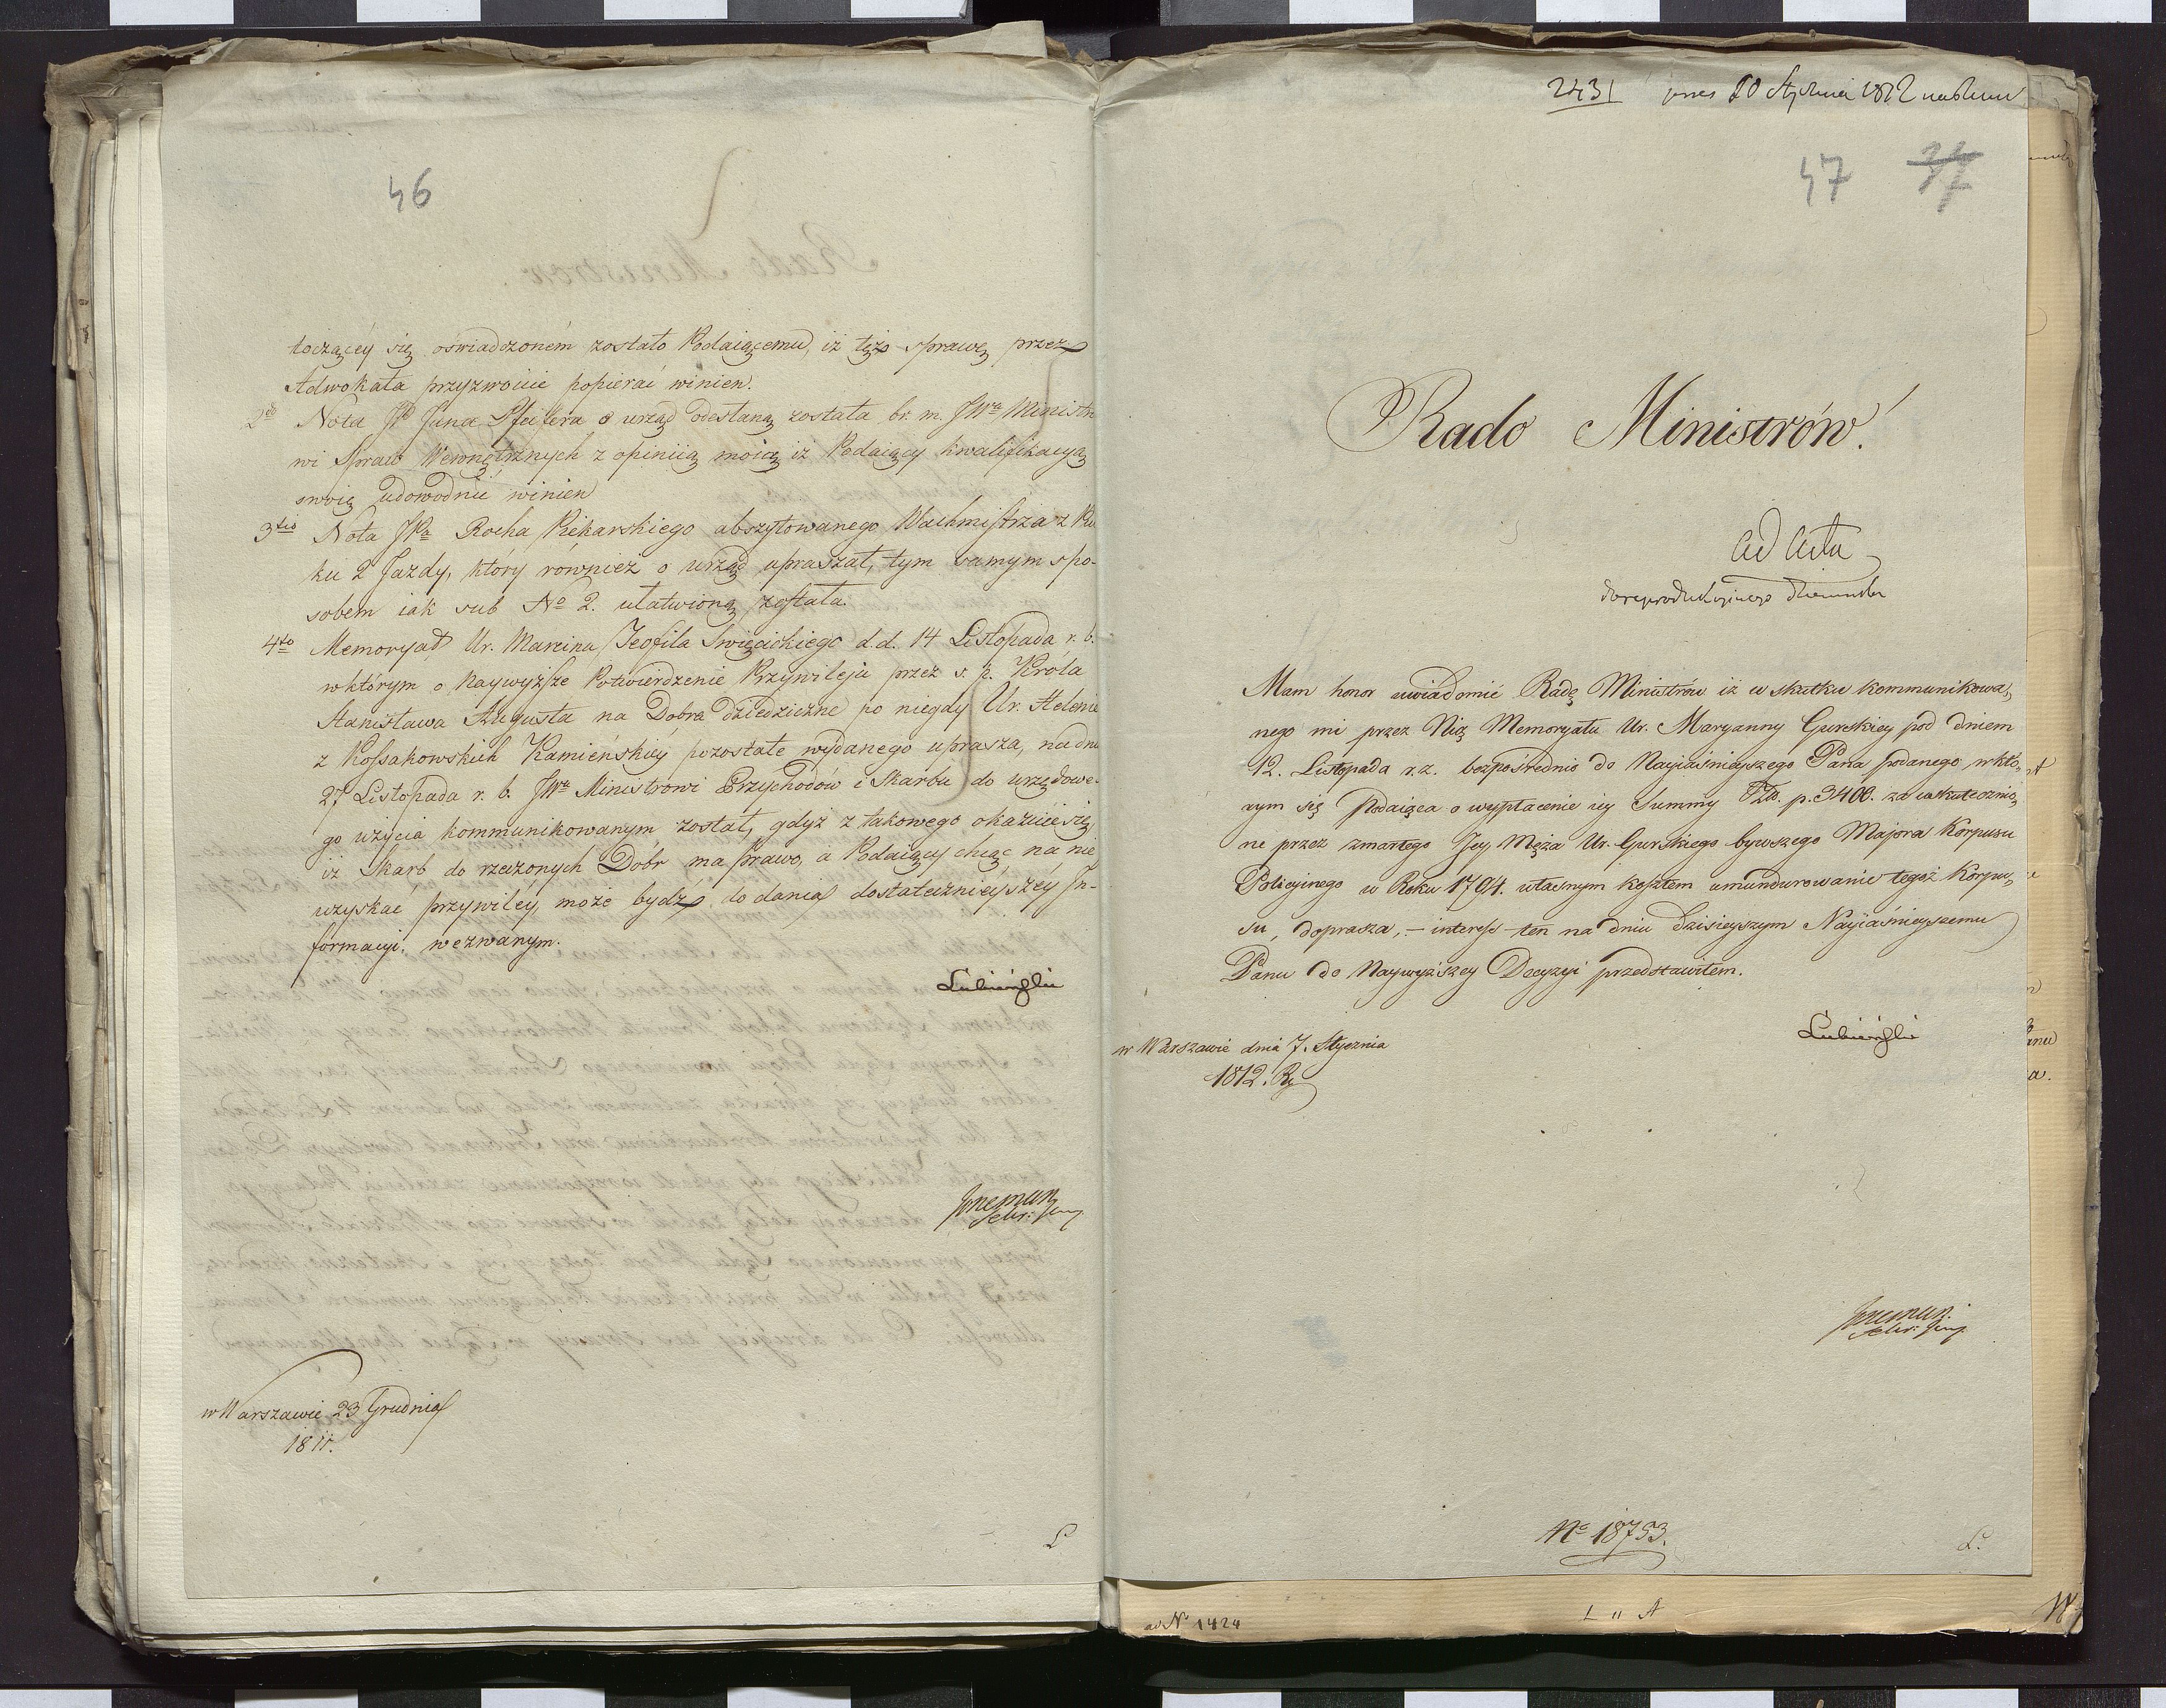 46
toczącéy się oświadczoném zostało Podaiącemu, iż tęż sprawę przez
Adwokata przyzwoicie popierać winien.
2do Nota JP Jana Pfeifera o urząd odesłaną została br. m. JWu Ministro
wi Spraw Wewnętrznych z opiniią moią iż Podaiący kwalifikacyą
swoię udowodnić winien
3tio Nota JPa Rocha Piekarskiego abszytowanego Wachmistrza z Pu
ku 2 Jazdy, który również o urząd upraszał, tym samym spo-
sobem iak sub No 2. ułatwioną została.
4to Memoryał Ur. Marcina Teofila Swięcickiego d.d. 14 Listopada r. b.
w którym o Naywyższe Potwierdzenie Przywileju przez s. p. Króla
Stanisława Augusta na Dobra dziedziczne po niegdy Ur. Helenie
z Kossakowskich Kamieńskiéy pozostałe wydanego uprasza, na dniu
27 Listopada r. b. JWu Ministrowi Przychodów i Skarbu do urzędowe-
go użycia kommunikowanym został, gdyż z takowego okazuie się,
iż Skarb do rzeczonych Dóbr ma prawo, a Podaiący chcąc na nie
uzyskać przywiléy, może bydź do dania dostatecznieyszéy In-
formacyi wezwanym.
Lubieński
Sekr: Jen.
w Warszawie 23 Grudnia
1811.
L
2431 pres 10 Stycznia 1812
47 37
Rado Ministrów!
ad acta
Mam honor uwiadomić Radę Ministrów iż w skutku kommunikowa„
nego mi przez Nią Memoryału Ur. Maryanny Gurskiey pod dniem
12. Listopada r. z. bezpośrednio do Nayiaśnieyszego Pana podanego w któ„
rym się Podaiąca o wypłacenie iey Summy Złto. p. 3400. za uskutecznio„
ne przez zmarłego Jey Męża Ur. Gurskiego bywszego Majora Korpusu
Policyjnego w Roku 1794. własnym kosztem umundurowanie tegoż Korpu„
su, doprasza, – interess ten na dniu dzisieyszym Nayiaśnieyszemu
Panu do Naywyższey Decyzyi przedstawiłem.
Lubieński
w Warszawie dnia 7. Stycznia
1812. R.
Sekr: Jen.
No 18753.
L.
ad No 1424
L " A